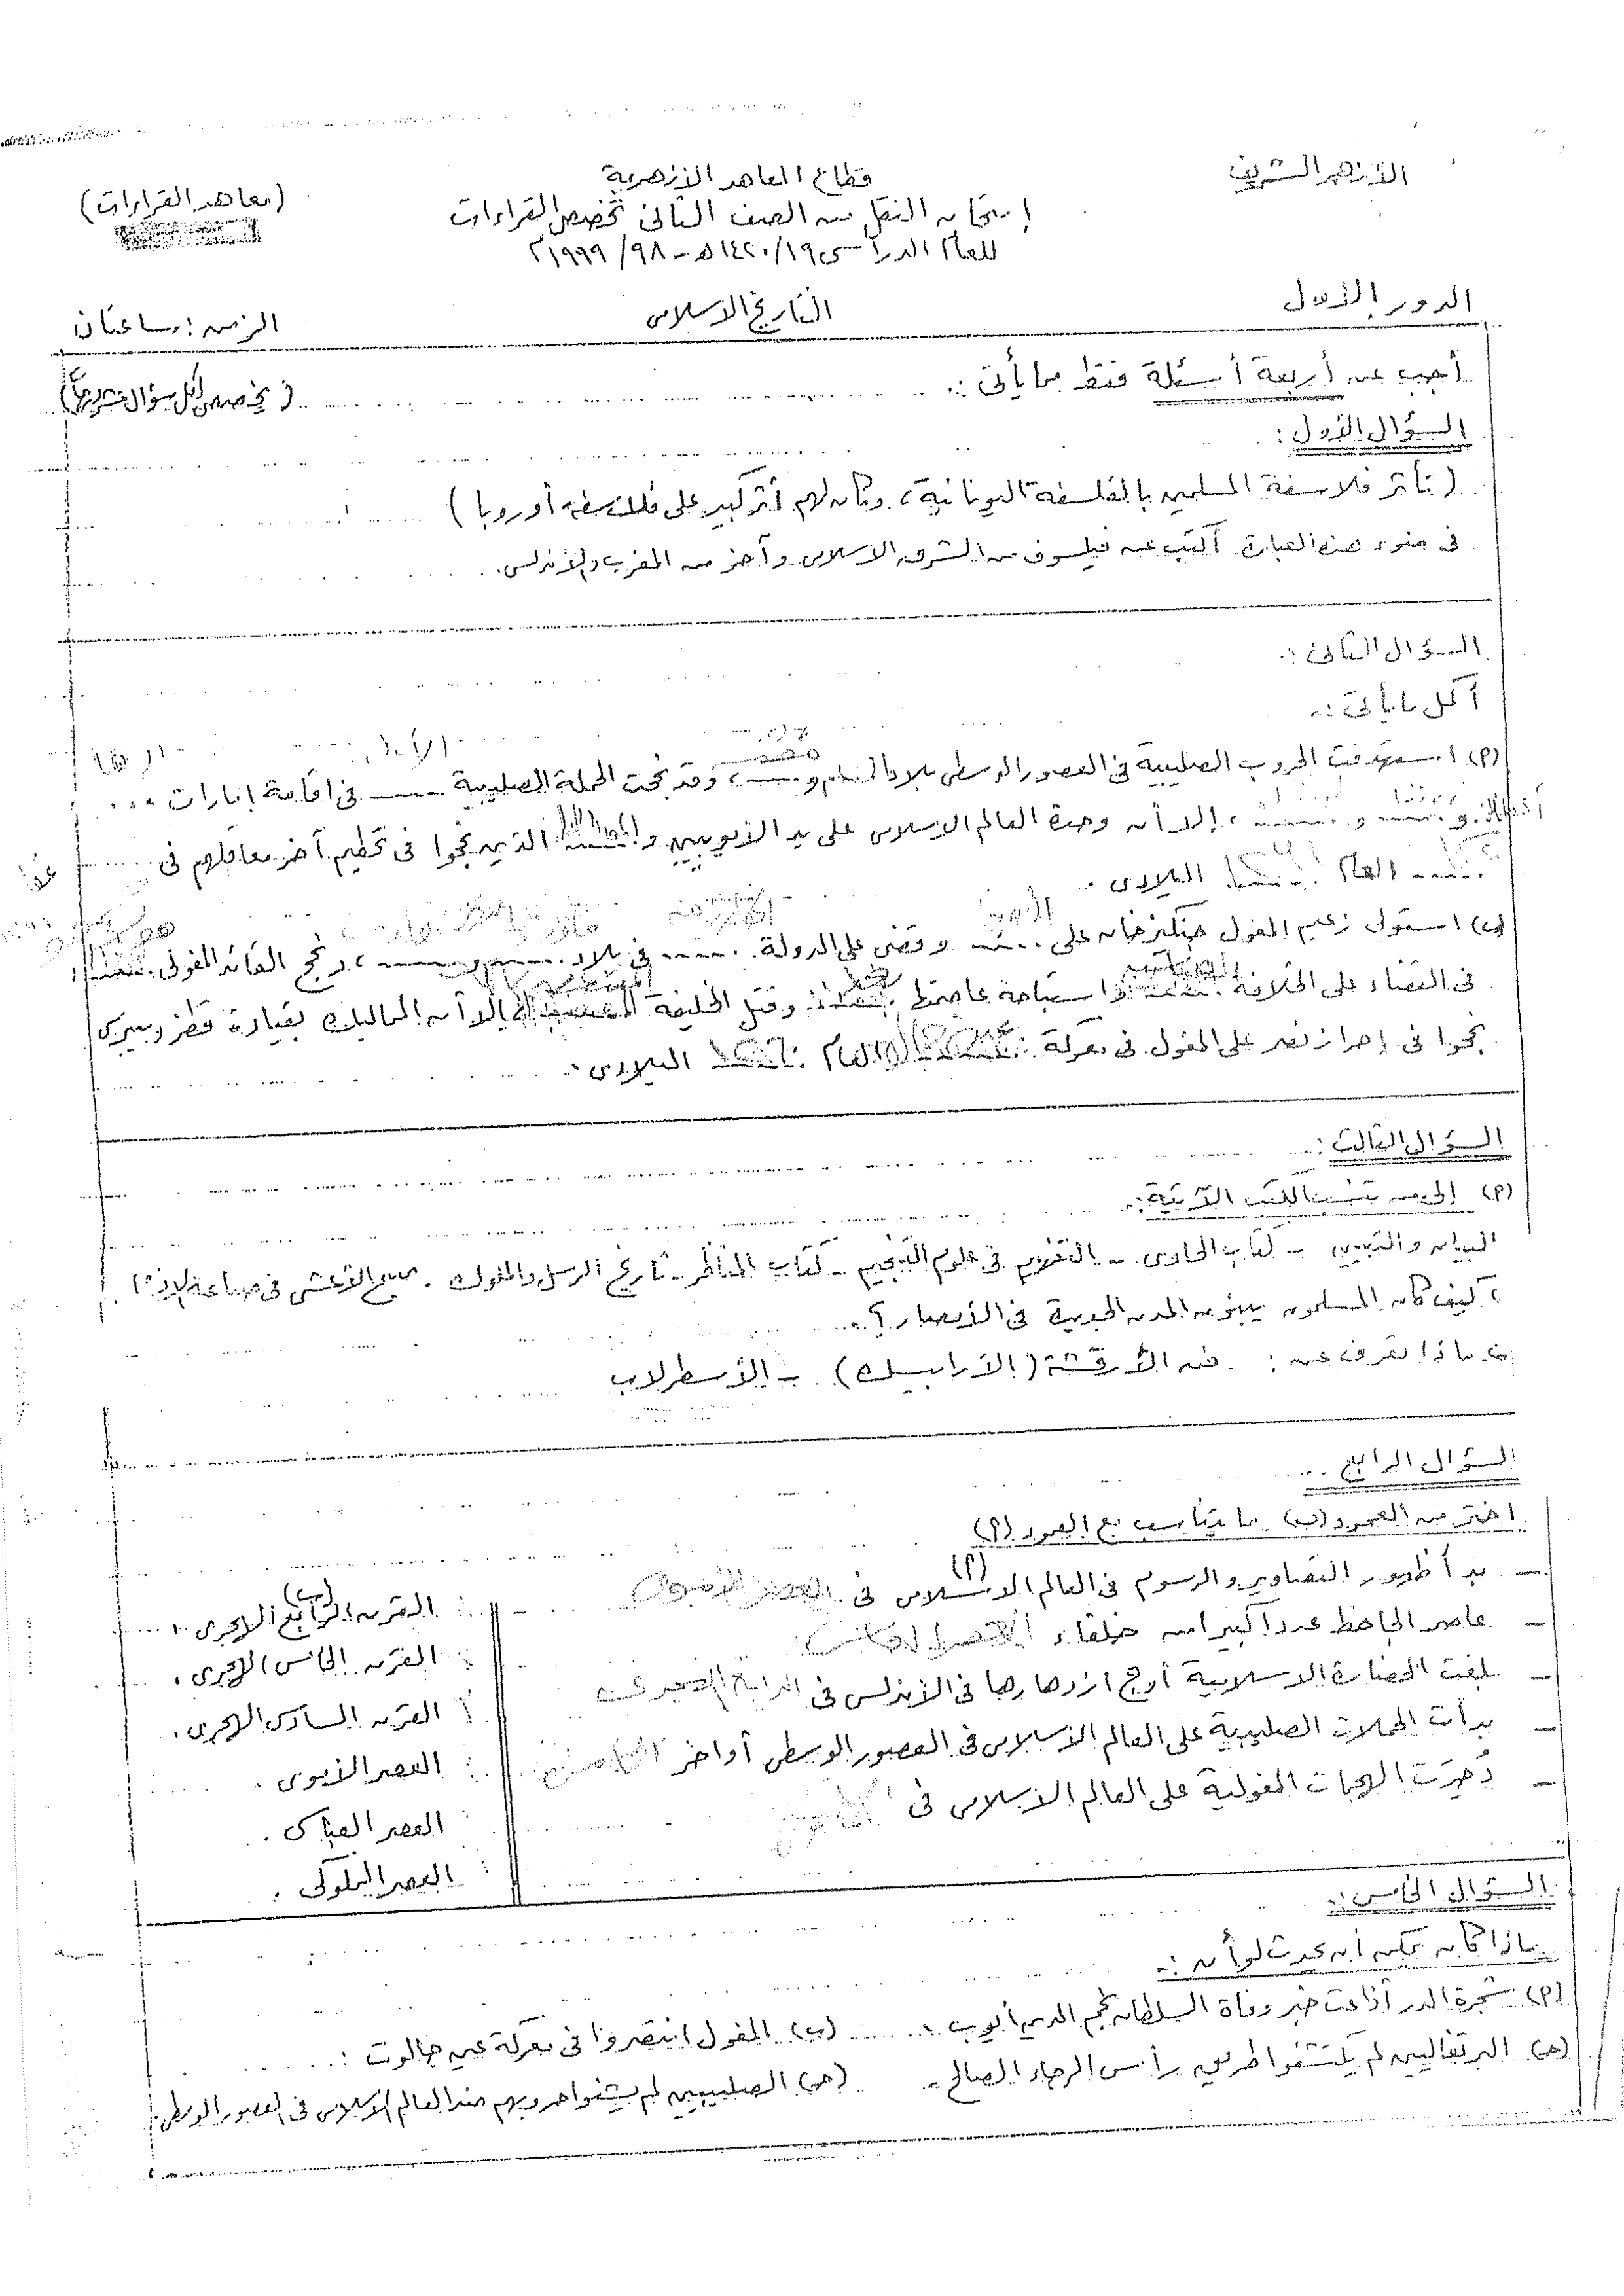 الأزهر الشريف
قطاع المعاهد الأزهرية
(معاهد القراءات)
إمتحان النقل من الصف الثانى تخصص القراءات
للعام الدراسى ١٤٢٠/١٩هـ - ٩٨/ ١٩٩٩م
الدور الأول
التاريخ الاسلامى
الزمن: ساعتان
أجب عن أربعة أسئلة فقط مما يأتى :.
(يخصص لكل سؤال
السؤال الأول :
(تأثر فلاسفة المسلمين بالفلسفة اليونانية، وكان لهم أثر كبير على فلاسفة أوروبا)
فى ضوء هذه العبارة. أكتب عن فيلسوف من الشرق الاسلامى وآخر من المغرب والأندلس.
السؤال الثانى :.
أكمل ما يأتى :.
(P) استهدفت الحروب الصليبية فى العصور الوسطى بلاد الشام و ...... ، وقد نجحت الحملة الصليبية ...... فى اقامة إمارات ....
و ...... و ...... ، إلا أن وحدة العالم الاسلامى على يد الأيوبيين و الذين نجحوا فى تحطيم آخر معاقلهم فى ......
العام الميلادى .
(ب) استولى زعيم المغول جنكيزخان على ...... وقضى على الدولة ...... فى بلاد ...... و ...... ، ونجح القائد المغولى
فى القضاء على الخلافة واستباحة عاصمتها وقتل الخليفة إلا أن المماليك بقيادة قطز وبيبرس
نجحوا فى إحراز نصر على المغول فى معركة العام الميلادى .
السؤال الثالث :.
(P) إلى من تنسب الكتب الآتية :.
البيان والتبيين - كتاب الحاوى - التفهيم فى علوم التنجيم - كتاب المناظر - تاريخ الرسل والملوك . صبح الأعشى فى صناعة الإنشا .
كيف كان المسلمون يبنون المدن الجديدة فى الأمصار ؟.
ماذا تعرف عن : فن الأرقشة (الأرابيسك) - الأسطرلاب
السؤال الرابع ..
اختر من العمود (ب) ما يتناسب مع العمود (P)
(P)
(ب)
- بدأ ظهور التصاوير والرسوم فى العالم الاسلامى فى العصر الأموى
القرن الرابع الهجرى .
- عاصر الجاحظ عددا كبيرا من خلفاء
القرن الخامس الهجرى .
- بلغت الحضارة الاسلامية أوج ازدهارها فى الأندلس فى
القرن السادس الهجرى .
- بدأت الحملات الصليبية على العالم الاسلامى فى العصور الوسطى أواخر
العصر الأموى .
- دُحِرَت الهجمات المغولية على العالم الاسلامى فى
العصر العباسى .
العصر المملوكى .
السؤال الخامس :.
ماذا كان يمكن أن يحدث لو أن :.
(P) شجرة الدر أذاعت خبر وفاة السلطان نجم الدين أيوب .
(ب) المغول انتصروا فى معركة عين جالوت :
(حـ) البرتغاليين لم يكتشفوا طريق رأس الرجاء الصالح .
(حـ) الصليبيين لم يشنوا حروبهم ضد العالم الاسلامى فى العصور الوسطى .